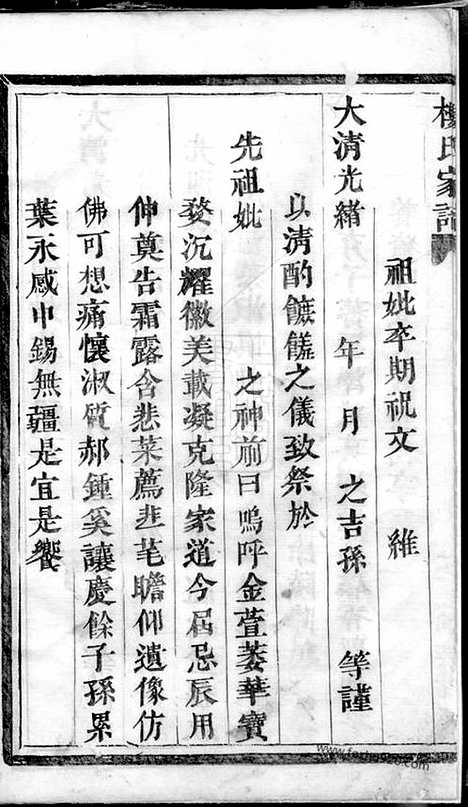 楊氏家譜
祖妣卒期祝文　維
大清光緒　年　月　之吉孫　等謹
以清酌饈饈之儀致祭於
先祖妣　之神前曰嗚呼金萱萎華寶
婺沉耀徽美載凝克隆家道今屆忌辰用
伸奠告霜露含悲菜薦韭芼瞻仰遺像仿
佛可想痛懷淑質郝鍾奚讓慶餘子孫累
葉永感中錫無疆是宜是饗